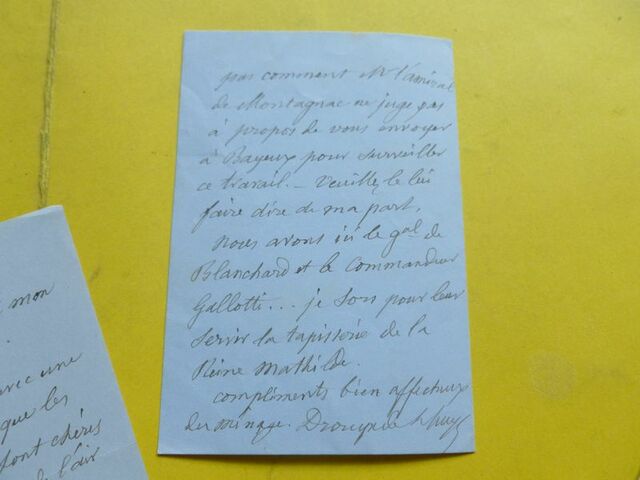 pas comment Mr l'amiral
de Montagnac ne juge pas
à propos de vous envoyer
à Bayeux pour surveiller
ce travail. — Veuillez le lui
faire dire de ma part.
nous avons ici le gal de
Blanchard et le Commandeur
Gallotti... je sors pour leur
servir la tapisserie de la
Reine Mathilde.
compliments bien affectueux
du Drouyn de Lhuys
mon
avec une
que les
font chères
l'air